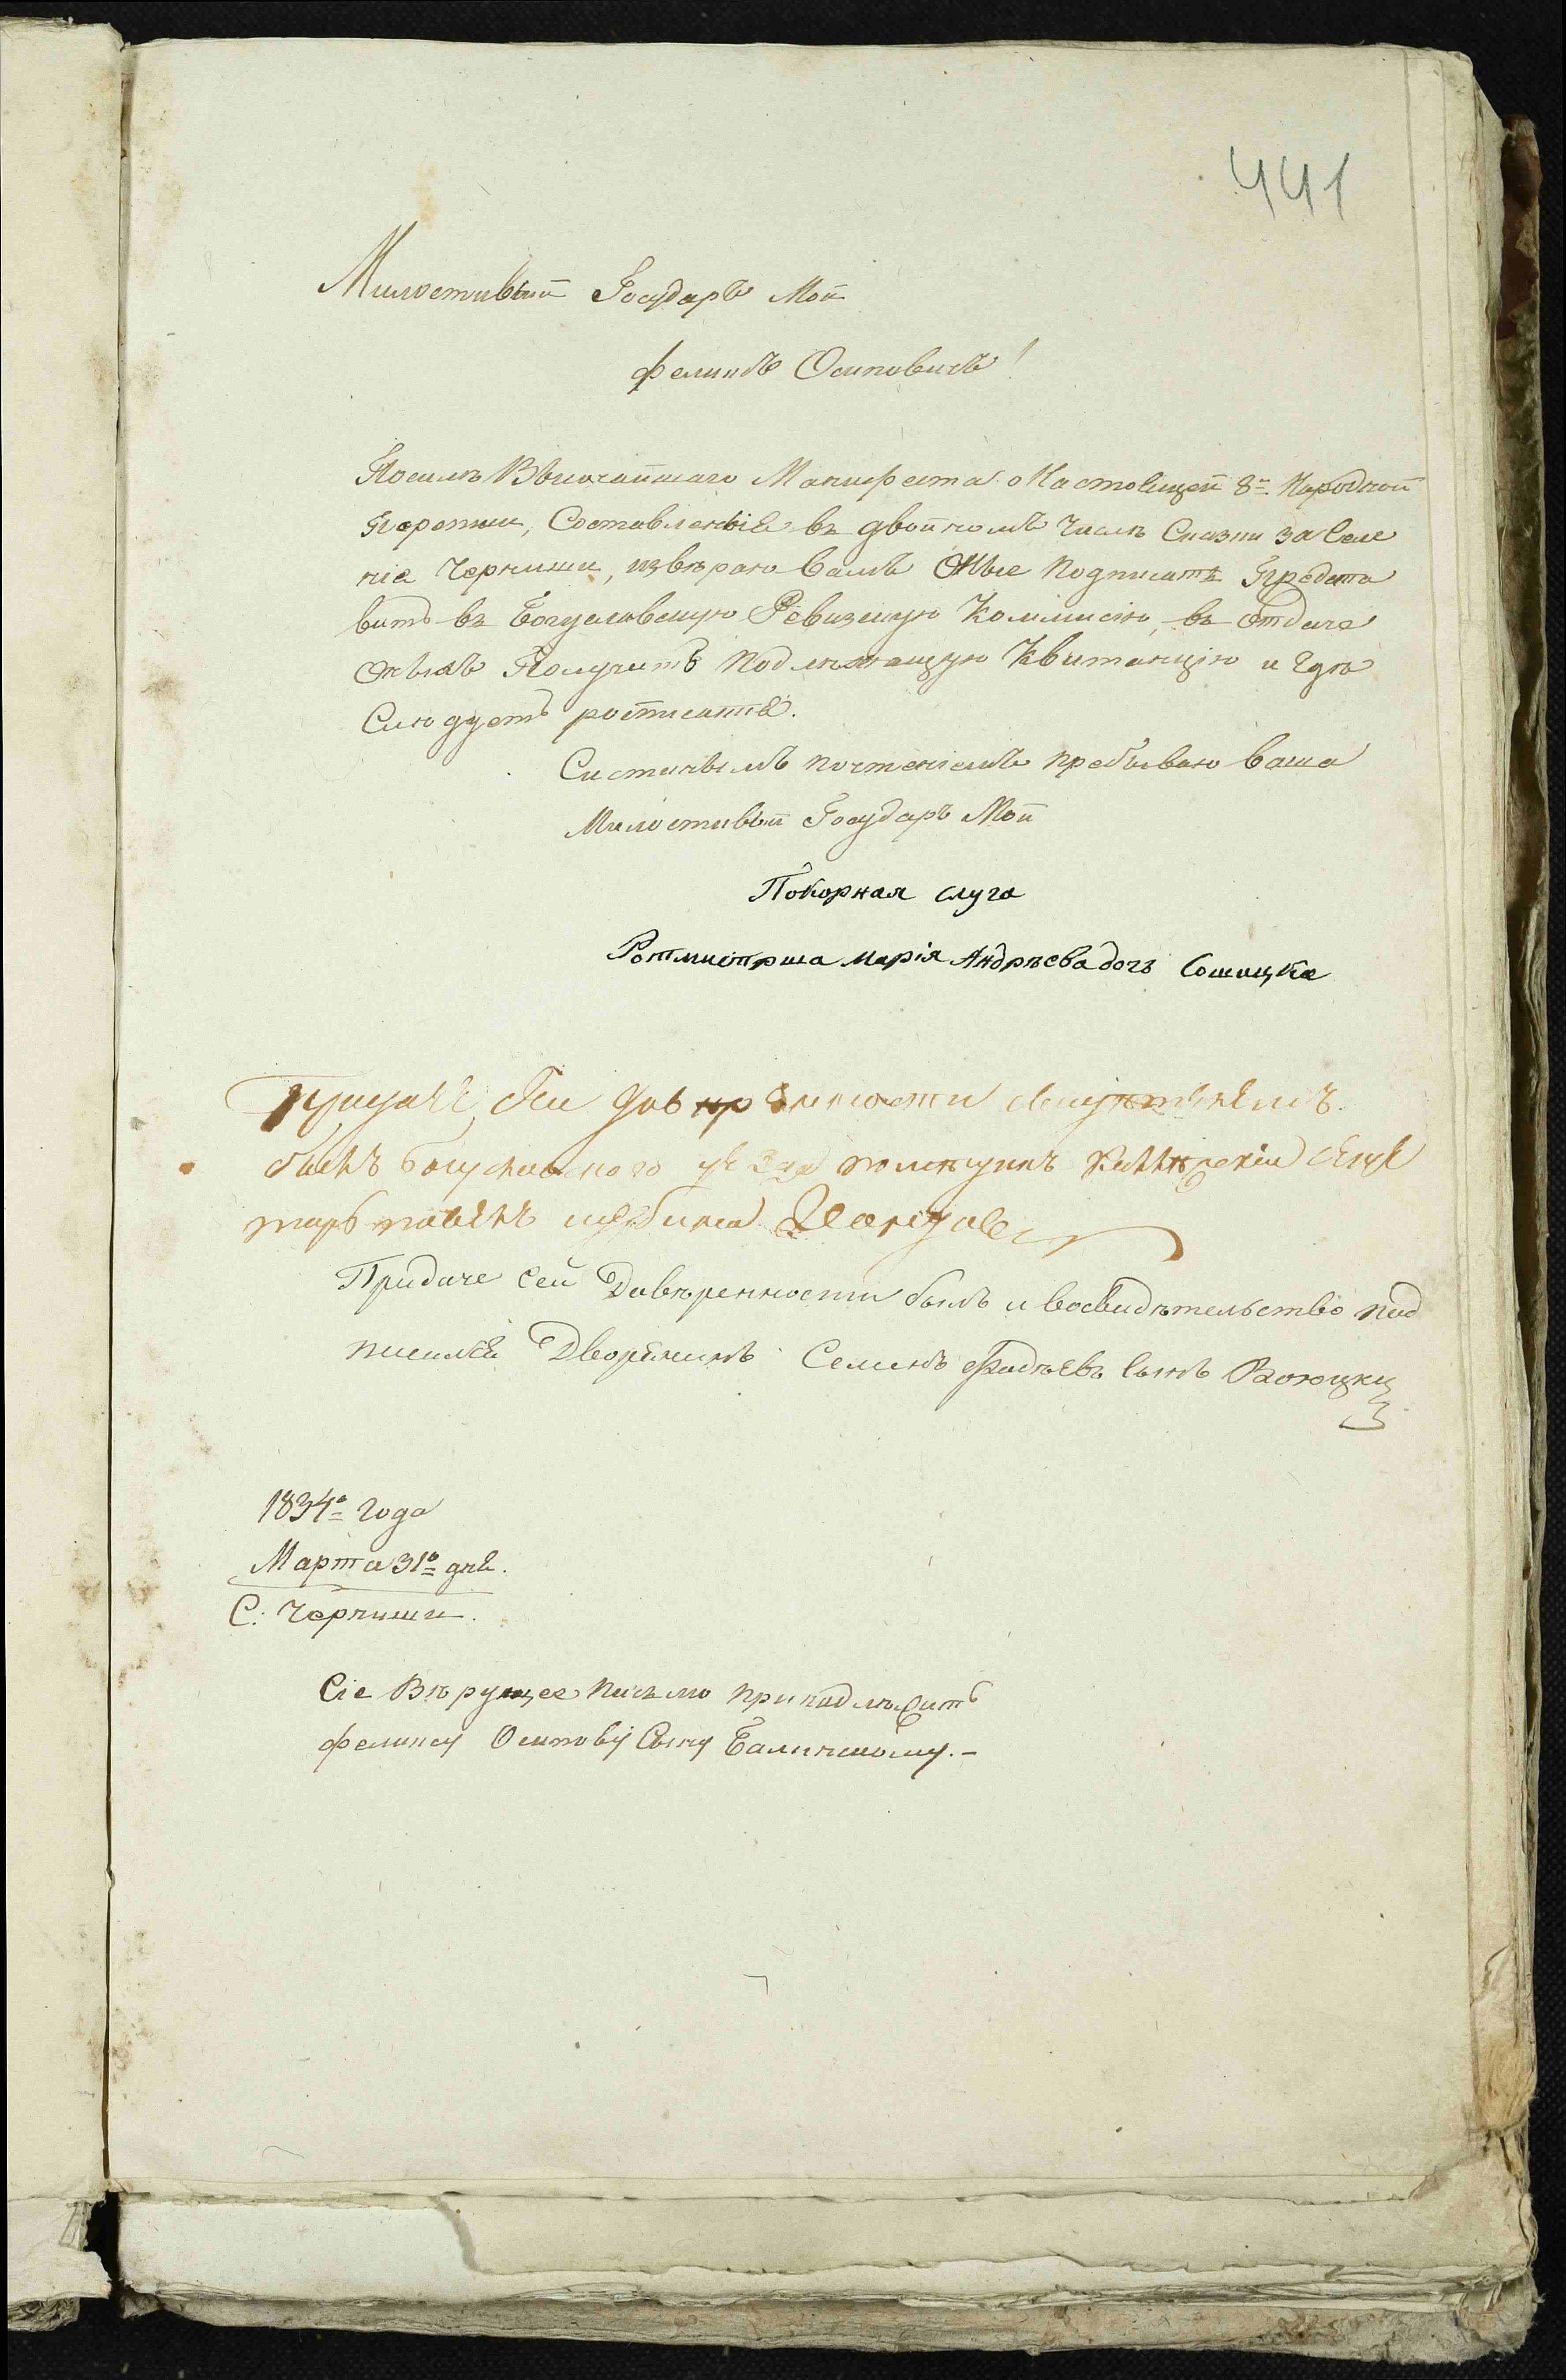 441
Милостивый Государь Мой
Феликсъ Осиповичъ!
Посилъ Височайшаго Манифеста о Настоящей 8й Народной
Перепыси, Составленые въ двойномъ Числѣ Сказки за Селе
ніе Черныши, извѣраю Вамъ Оные Подписать Предста
вить въ Богуславскую Ревизскую Коммисію, въ Отдаче
Оныхъ Получить Подлѣжащую Квитанцію и гдѣ
Слюдуетъ росписатся.
Систинымъ почтеніемъ пребываю Ваша
Милостивый Государь Мой
Покорная слуга
Ротмистрша Марія Андрѣева дочь Сошицка
сей довѣренности
былъ Богуславского
Придаче Сей Давѣренности былъ и восвидѣтельство под
писался Дворянинъ Семенъ Фадѣевъ Сынъ
1834го Года
Марта 31го дня.
С: Черныши.
Сіе Вѣрующее Письмо принадлѣжитъ
Феликсу Осипову Сыну Балинскому. –